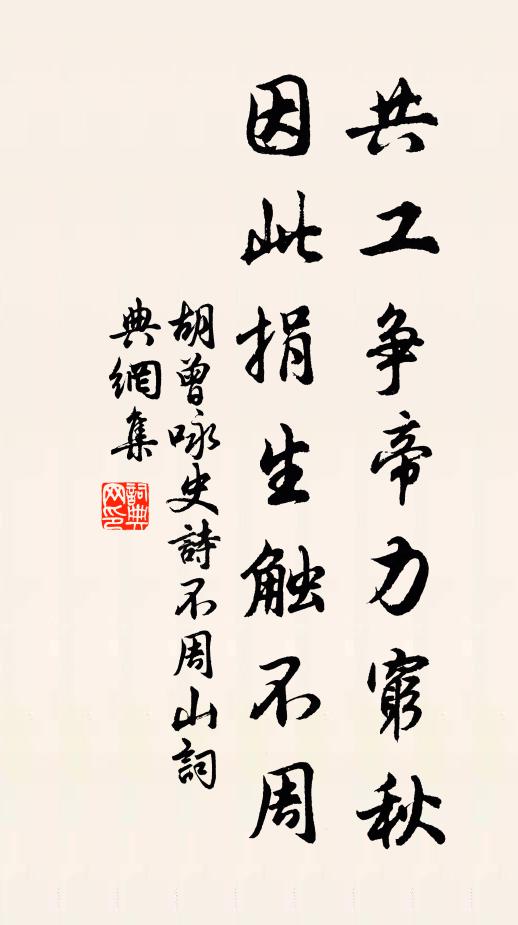 共工争帝力窮秋
因此捐生触不周
胡曾咏史詩不周山詞
典網集
詞典网印